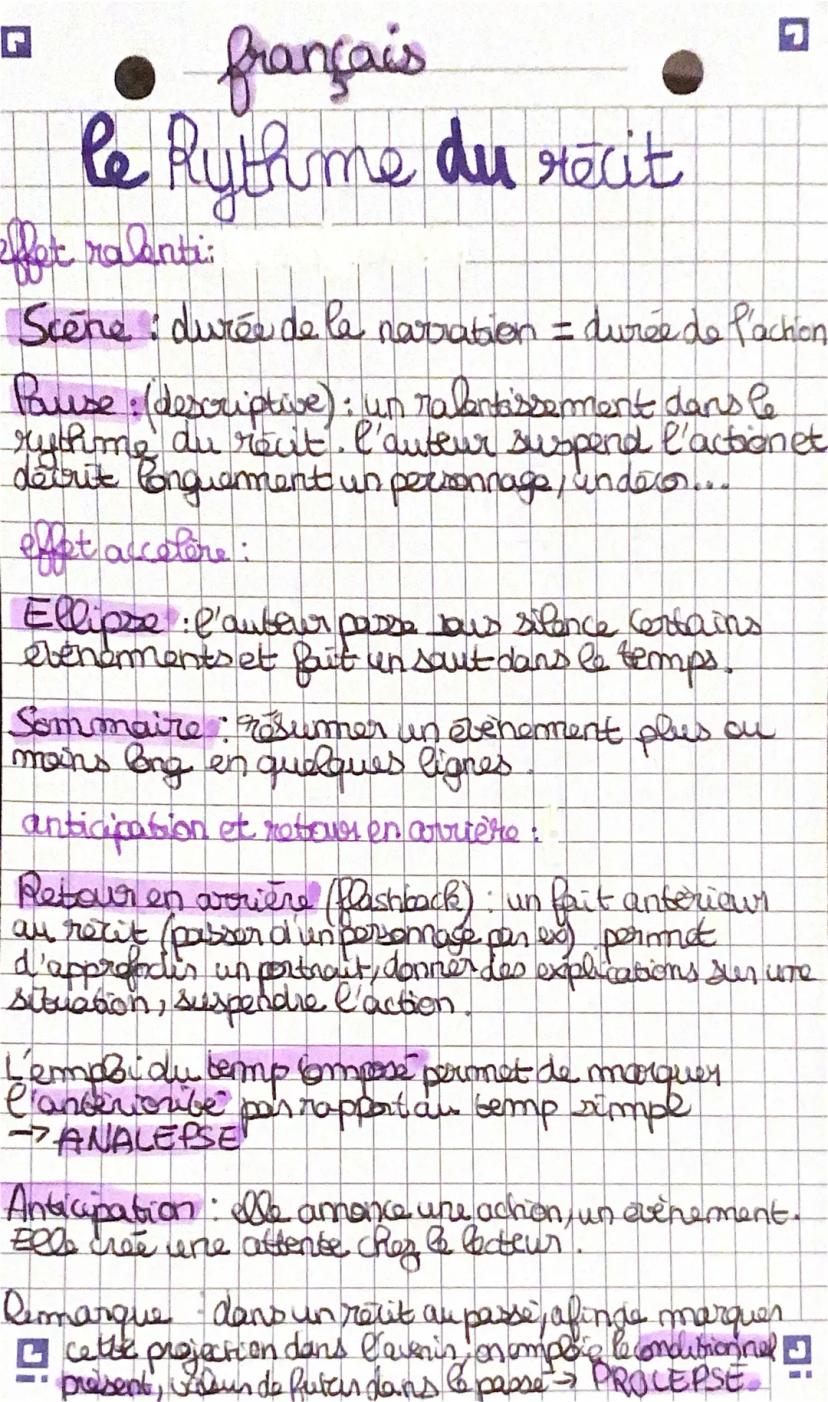 français
le Rythme du récit
effet ralenti:
Scène : durée de la narration = durée de l'action
Pause : (descriptive) : un ralentissement dans le
rythme du récit. l'auteur suspend l'action et
décrit longuement un personnage, un décor...
effet accélère :
Ellipse : l'auteur passe sous silence certains
évènements et fait un saut dans le temps.
Sommaire : résumer un évènement plus ou
moins long en quelques lignes.
anticipation et retour en arrière :
Retour en arrière (flashback) : un fait antérieur
au récit (passer d'un personnage par ex) permet
d'approfodir un portrait, donner des explications sur une
situation, suspendre l'action.
L'emploi du temp composé permet de marquer
l'antériorité par rapport au temp simple
→ ANALEPSE
Anticipation : elle annonce une action, un évènement.
Elle crée une attente chez le lecteur.
Remarque : dans un récit au passé, afin de marquer
cette projection dans l'avenir, on emploie le conditionnel
présent, valeur de futur dans le passé → PROLEPSE.